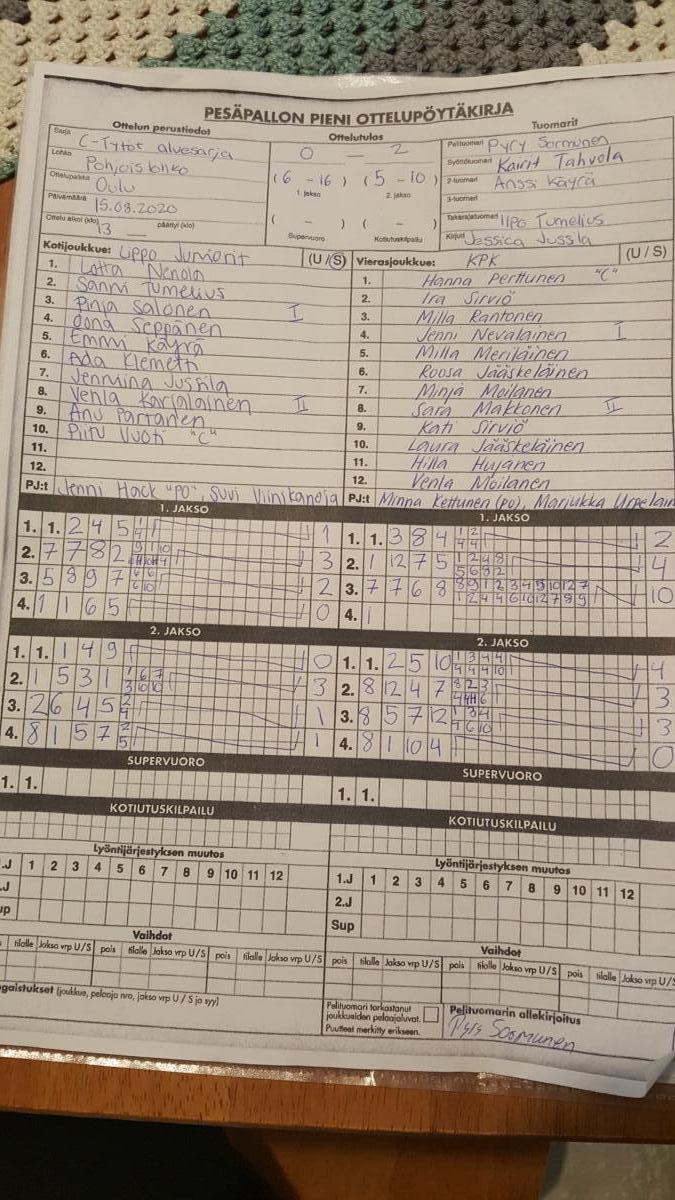 PESÄPALLON PIENI OTTELUPÖYTÄKIRJA
Ottelun perustiedot
Sarja C-Tytöt aluesarja
Lohko Pohjoislohko
Ottelupaikka Oulu
Päivämäärä 15.08.2020
Ottelu alkoi (klo) 13 päättyi (klo)
Ottelutulos
0 — 2
(6 - 16) (5 - 10)
1. jakso 2. jakso
( - ) ( - )
Supervuoro Kotiutuskilpailu
Tuomarit
Pelituomari Pyry Sormunen
Syöttötuomari Kairit Tahvola
2-tuomari Anssi Käyrä
3-tuomari
Takarajatuomari Ilpo Tumelius
Kirjuri Jessica Jussila
Kotijoukkue: Lippo Juniorit (U/S)
1. Lotta Nenola
2. Sanni Tumelius
3. Pinja Salonen I
4. Oona Seppänen
5. Emmi Käyrä
6. Ada Klemetti
7. Jenniina Jussila
8. Venla Karjalainen II
9. Anu Partanen
10. Piitu Vuoti "C"
11.
12.
PJ:t Jenni Hack "PO", Suvi Viinikanoja
Vierasjoukkue: KPK (U / S)
1. Hanna Perttunen "C"
2. Ira Sirviö
3. Milla Rantonen
4. Jenni Nevalainen I
5. Milla Meriläinen
6. Roosa Jääskeläinen
7. Minja Moilanen
8. Sara Makkonen II
9. Kati Sirviö
10. Laura Jääskeläinen
11. Hilla Hujanen
12. Venla Moilanen
PJ:t Minna Kettunen (PO), Marjukka
1. JAKSO
1. 1. 2 4 5 1
2. 7 7 8 2 3
3. 5 8 9 7 2
4. 1 1 6 5 0
1. JAKSO
1. 1. 3 8 4 2
2. 1 12 7 5 4
3. 7 7 6 8 10
4. 1
2. JAKSO
1. 1. 1 4 9 0
2. 1 5 3 1 3
3. 2 6 4 5 1
4. 8 1 5 7 1
2. JAKSO
1. 1. 2 5 10 4
2. 8 12 4 7 3
3. 8 5 7 12 3
4. 8 1 10 4 0
SUPERVUORO
1. 1.
SUPERVUORO
1. 1.
KOTIUTUSKILPAILU
KOTIUTUSKILPAILU
Lyöntijärjestyksen muutos
.J 1 2 3 4 5 6 7 8 9 10 11 12
.J
up
Lyöntijärjestyksen muutos
1.J 1 2 3 4 5 6 7 8 9 10 11 12
2.J
Sup
Vaihdot
tilalle Jakso vrp U/S pois tilalle Jakso vrp U/S pois tilalle Jakso vrp U/S
Vaihdot
pois tilalle Jakso vrp U/S pois tilalle Jakso vrp U/S pois tilalle Jakso vrp U/S
ngaistukset (joukkue, pelaaja nro, jakso vrp U / S ja syy)
Pelituomari tarkastanut
joukkueiden pelaajaluvat.
Puutteet merkitty erikseen.
Pelituomarin allekirjoitus
Pyry Sormunen